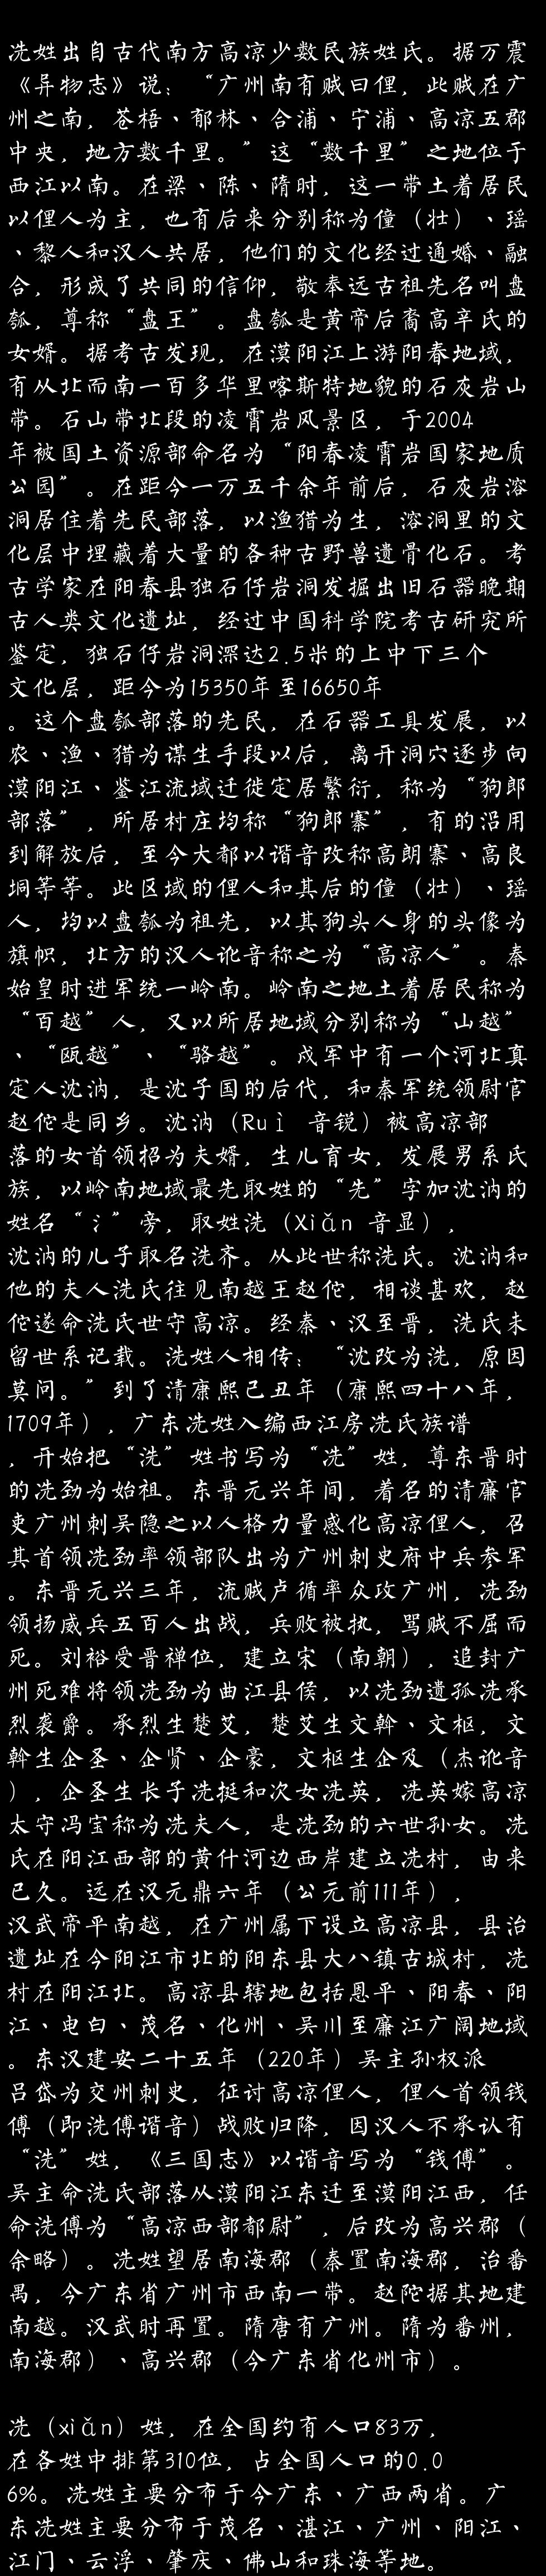 冼姓出自古代南方高凉少数民族姓氏。据万震
《异物志》说：“广州南有贼曰俚，此贼在广
州之南，苍梧、郁林、合浦、宁浦、高凉五郡
中央，地方数千里。”这“数千里”之地位于
西江以南。在梁、陈、隋时，这一带土着居民
以俚人为主，也有后来分别称为僮（壮）、瑶
、黎人和汉人共居，他们的文化经过通婚、融
合，形成了共同的信仰，敬奉远古祖先名叫盘
瓠，尊称“盘王”。盘瓠是黄帝后裔高辛氏的
女婿。据考古发现，在漠阳江上游阳春地域，
有从北而南一百多华里喀斯特地貌的石灰岩山
带。石山带北段的凌霄岩风景区，于2004
年被国土资源部命名为“阳春凌霄岩国家地质
公园”。在距今一万五千余年前后，石灰岩溶
洞居住着先民部落，以渔猎为生，溶洞里的文
化层中埋藏着大量的各种古野兽遗骨化石。考
古学家在阳春县独石仔岩洞发掘出旧石器晚期
古人类文化遗址，经过中国科学院考古研究所
鉴定，独石仔岩洞深达2.5米的上中下三个
文化层，距今为15350年至16650年
。这个盘瓠部落的先民，在石器工具发展，以
农、渔、猎为谋生手段以后，离开洞穴逐步向
漠阳江、鉴江流域迁徙定居繁衍，称为“狗郎
部落”，所居村庄均称“狗郎寨”，有的沿用
到解放后，至今大都以谐音改称高朗寨、高良
垌等等。此区域的俚人和其后的僮（壮）、瑶
人，均以盘瓠为祖先，以其狗头人身的头像为
旗帜，北方的汉人讹音称之为“高凉人”。秦
始皇时进军统一岭南。岭南之地土着居民称为
“百越”人，又以所居地域分别称为“山越”
、“瓯越”、“骆越”。戍军中有一个河北真
定人沈汭，是沈子国的后代，和秦军统领尉官
赵佗是同乡。沈汭（Ruì 音锐）被高凉部
落的女首领招为夫婿，生儿育女，发展男系氏
族，以岭南地域最先取姓的“先”字加沈汭的
姓名“氵”旁，取姓洗（Xiǎn 音显），
沈汭的儿子取名洗齐。从此世称洗氏。沈汭和
他的夫人洗氏往见南越王赵佗，相谈甚欢，赵
佗遂命洗氏世守高凉。经秦、汉至晋，洗氏未
留世系记载。洗姓人相传：“沈改为洗，原因
莫问。”到了清康熙己丑年（康熙四十八年，
1709年），广东冼姓入编西江房冼氏族谱
，开始把“洗”姓书写为“冼”姓，尊东晋时
的冼劲为始祖。东晋元兴年间，着名的清廉官
吏广州刺吴隐之以人格力量感化高凉俚人，召
其首领冼劲率领部队出为广州刺史府中兵参军
。东晋元兴三年，流贼卢循率众攻广州，冼劲
领扬威兵五百人出战，兵败被执，骂贼不屈而
死。刘裕受晋禅位，建立宋（南朝），追封广
州死难将领冼劲为曲江县侯，以冼劲遗孤冼承
烈袭爵。承烈生楚艾，楚艾生文斡、文枢，文
斡生企圣、企贤、企豪，文枢生企及（杰讹音
），企圣生长子冼挺和次女冼英，冼英嫁高凉
太守冯宝称为冼夫人，是冼劲的六世孙女。冼
氏在阳江西部的黄什河边西岸建立冼村，由来
已久。远在汉元鼎六年（公元前111年），
汉武帝平南越，在广州属下设立高凉县，县治
遗址在今阳江市北的阳东县大八镇古城村，冼
村在阳江北。高凉县辖地包括恩平、阳春、阳
江、电白、茂名、化州、吴川至廉江广阔地域
。东汉建安二十五年（220年）吴主孙权派
吕岱为交州刺史，征讨高凉俚人，俚人首领钱
傅（即洗傅谐音）战败归降，因汉人不承认有
“洗”姓，《三国志》以谐音写为“钱傅”。
吴主命洗氏部落从漠阳江东迁至漠阳江西，任
命洗傅为“高凉西部都尉”，后改为高兴郡（
余略）。冼姓望居南海郡（秦置南海郡，治番
禺，今广东省广州市西南一带。赵陀据其地建
南越。汉武时再置。隋唐有广州。隋为番州，
南海郡）、高兴郡（今广东省化州市）。
冼（xiǎn）姓，在全国约有人口83万，
在各姓中排第310位，占全国人口的0.0
6%。冼姓主要分布于今广东、广西两省。广
东冼姓主要分布于茂名、湛江、广州、阳江、
江门、云浮、肇庆、佛山和珠海等地。